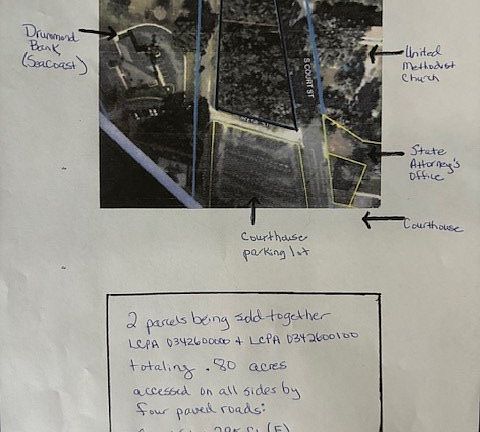 Drummond
Bank
(Seacoast)
United
Methodist
Church
S COURT ST
State
Attorney's
Office
Courthouse
Courthouse
parking lot
2 parcels being sold together
LCPA 0342600000 + LCPA 0342600100
totaling .80 acres
accessed on all sides by
four paved roads: